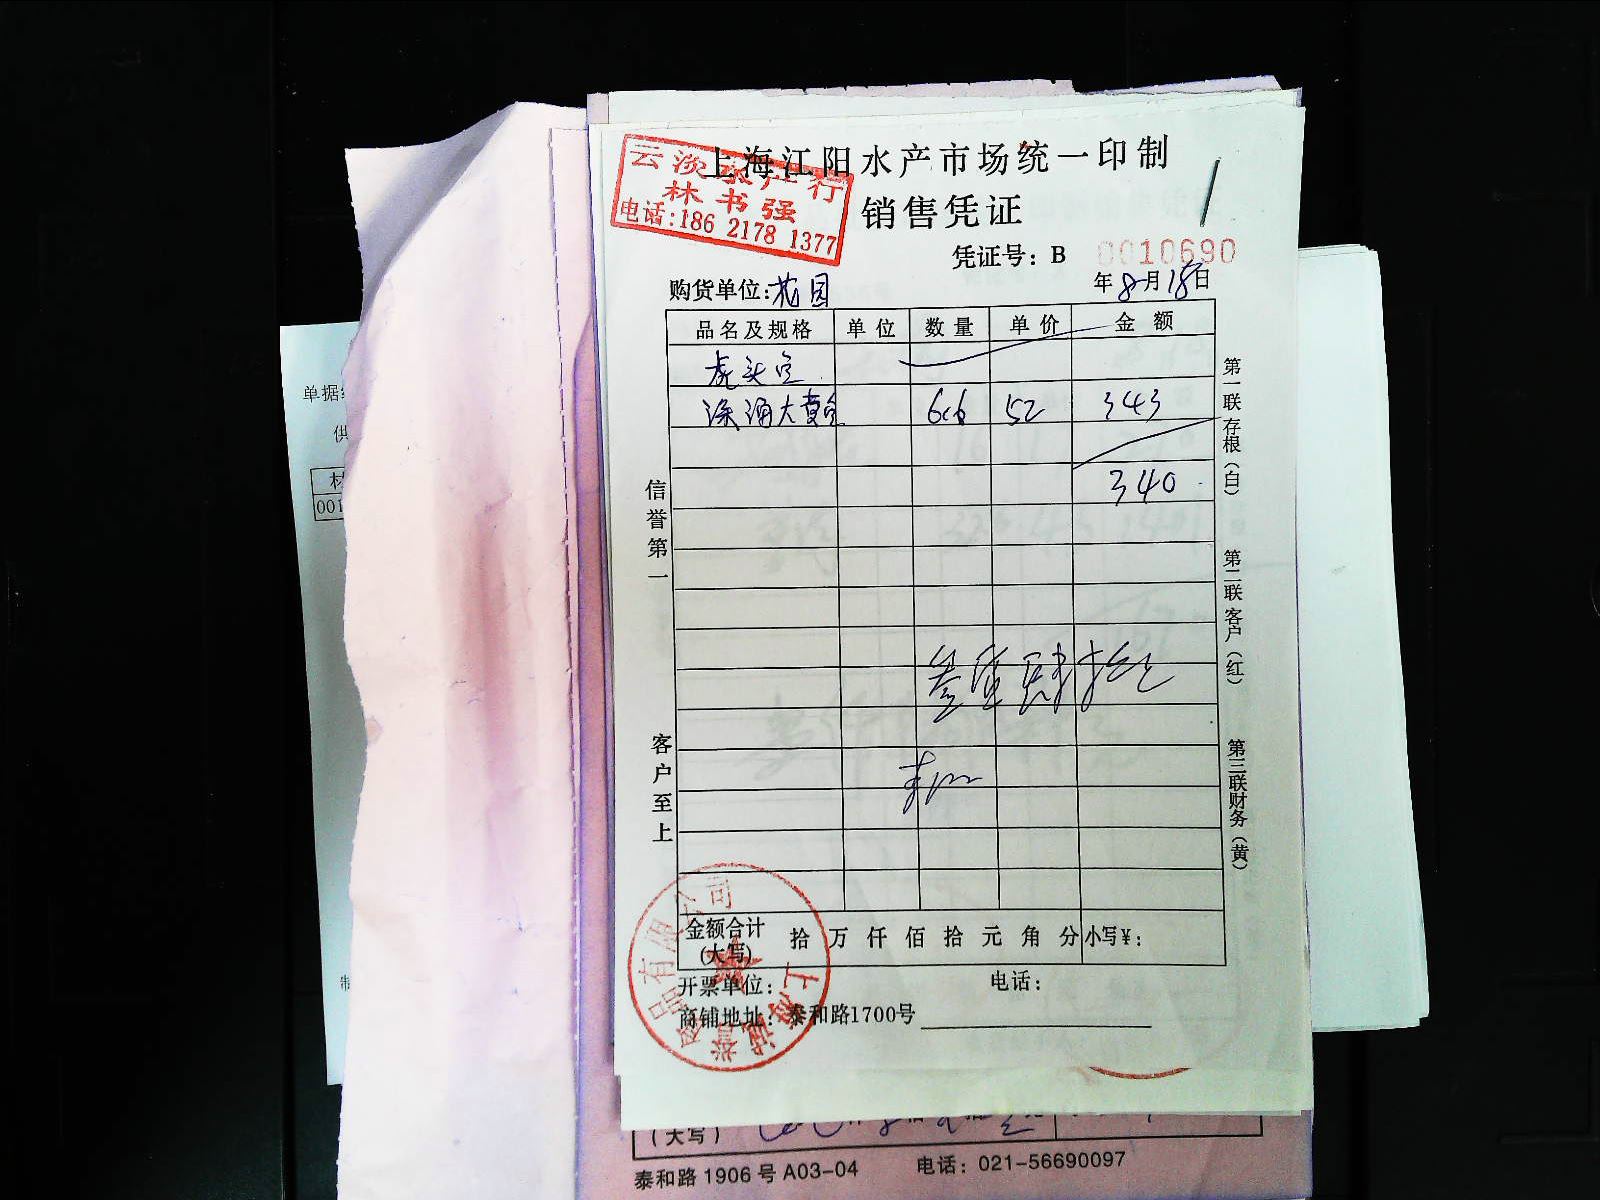 上海江阳水产市场统一印制
云淡水产行
林书强
电话:186 2178 1377
销售凭证
凭证号: B 0010690
购货单位:花园
年8月18日
品名及规格 单位 数量 单价 金额
虎头
大黄鱼 6.6 52 343
340
叁佰肆拾
信誉第一
客户至上
第一联存根(白)
第二联客户(红)
第三联财务(黄)
金额合计(大写) 拾 万 仟 佰 拾 元 角 分 小写¥:
开票单位: 电话:
商铺地址: 泰和路1700号
单据
供
材
001
制
(大写)
泰和路 1906 号 A03-04 电话: 021-56690097